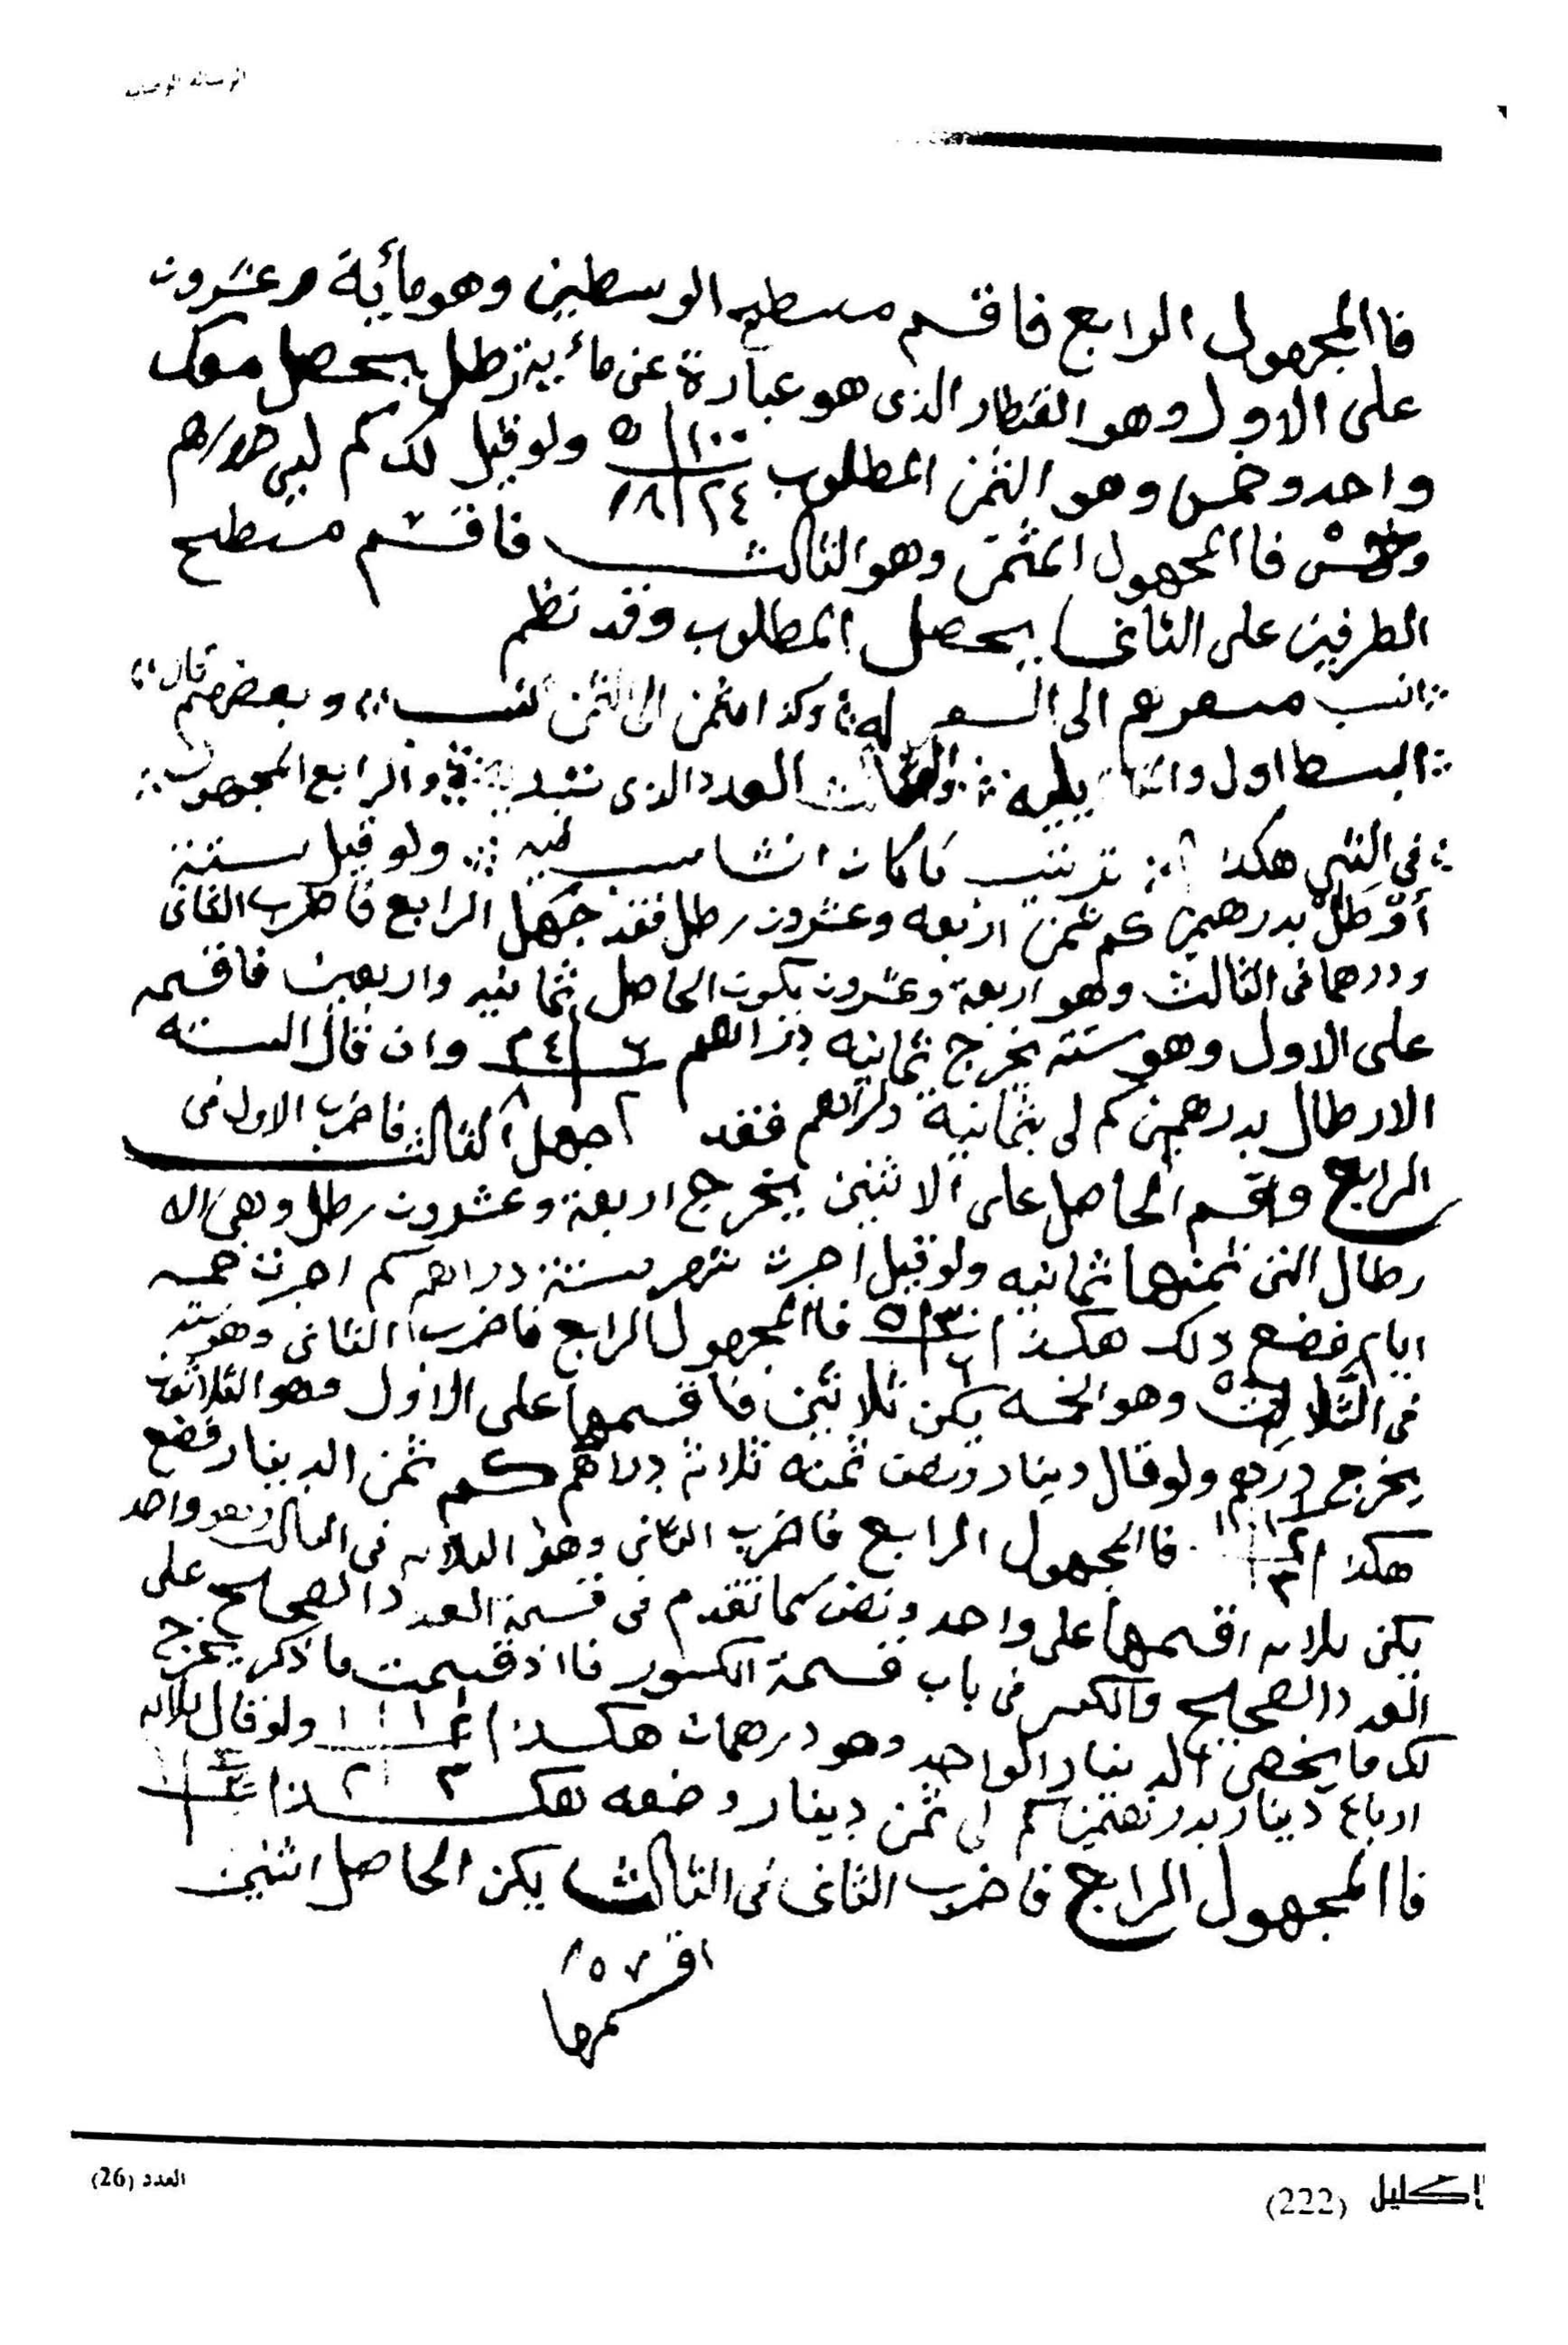 فا المجهول الرابع فاقسم مسطح الوسطين وهو مأية وعشرون
على الاول وهو القنطار الذى هو عبارة عن مأية رطل يحصل معك
واحد وخمس وهو الثمن المطلوب ١٠٠ ٥ ٢٤ ولو قيل لك كم لى
وخمس فا المجهول المثمن وهو الثالث فاقسم مسطح
الطرفين على الثانى يحصل المطلوب وقد نظم
انسب مسعرهم الى السعر له وكذا مثمن الى الثمن انسب وبعضهم قال
البسط اول يليه والثالث العدد الذى والرابع المجهول
فى هكذا ترتيب ولو قيل ستة
أرطل بدرهمين كم ثمن اربعه وعشرون رطل فقد جهل الرابع فاضرب الثانى
ودرهما فى الثالث وهو اربعة وعشرون يكون الحاصل ثمانيه واربعين فاقسمه
على الاول وهو سته يخرج ثمانيه دراهم ٦ ٢٤ وان قال السته
الارطال بدرهمين كم لى بثمانية دراهم فقد ٢ ٨ جهل الثالث فاضرب الاول فى
الرابع واقسم الحاصل على الاثنين يخرج اربعة وعشرون رطل وهى الا
رطال التى ثمنها ثمانيه ولو قيل اجرت شهر ستة دراهم كم اجرت خمسه
ايام فضع ذلك هكذا ٣٠ ٥ ٦ فا المجهول الرابع فاضرب الثانى وهو سته
فى الثالث وهو الخمسه يكن ثلاثين فاقسمها على الاول وهو الثلاثون
يخرج درهم ولو قال دينار ونصف ثمنه ثلاثة دراهم كم ثمن الدينار فضع
هكذا فا المجهول الرابع فاضرب الثانى وهو الثلاثه فى الثالث وهو واحد
يكن ثلاثه اقسمها على واحد ونصف كما تقدم فى قسمة العدد الصحيح على
العدد الصحيح والكسر فى باب قسمة الكسور فا اذ قسمت ما ذكر يخرج
لك ما يخص الدينار الواحد وهو درهمان هكذا ولو قال ثلاثه
ارباع دينار بدرهمين كم لى ثمن دينار وضعه هكذا
فا المجهول الرابع فاضرب الثانى فى الثالث يكن الحاصل اثنين
اقسمها
١٥٧
العدد (26)
إكليل (222)